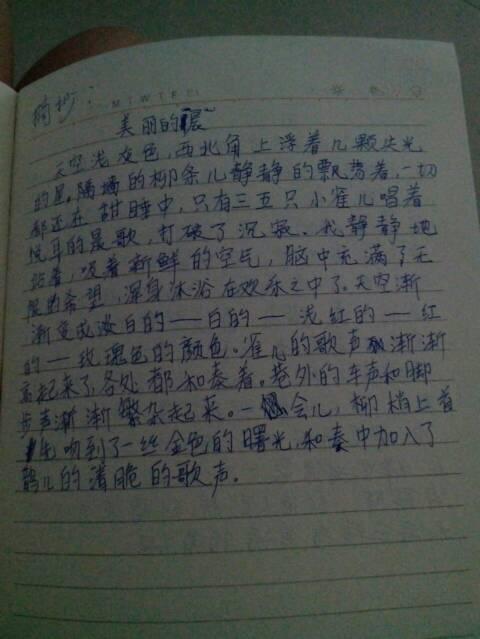 摘抄:
M T W T F S S
美丽的晨
天空浅灰色,西北角上浮着几颗失光
的星。隔墙的柳条儿静静的飘荡着,一切
都还在甜睡中,只有三五只小雀儿唱着
悦耳的晨歌,打破了沉寂。我静静地
站着,吸着新鲜的空气,脑中充满了无
限的希望,浑身沐浴在欢乐之中了。天空渐
渐变成淡白的——白的——浅红的——红
的——玫瑰色的颜色。雀儿的歌声渐渐
高起来了,各处都和奏着。巷外的车声和脚
步声渐渐繁杂起来。一会儿,柳梢上首
先吻到了一丝金色的曙光,和奏中加入了
鹊儿的清脆的歌声。